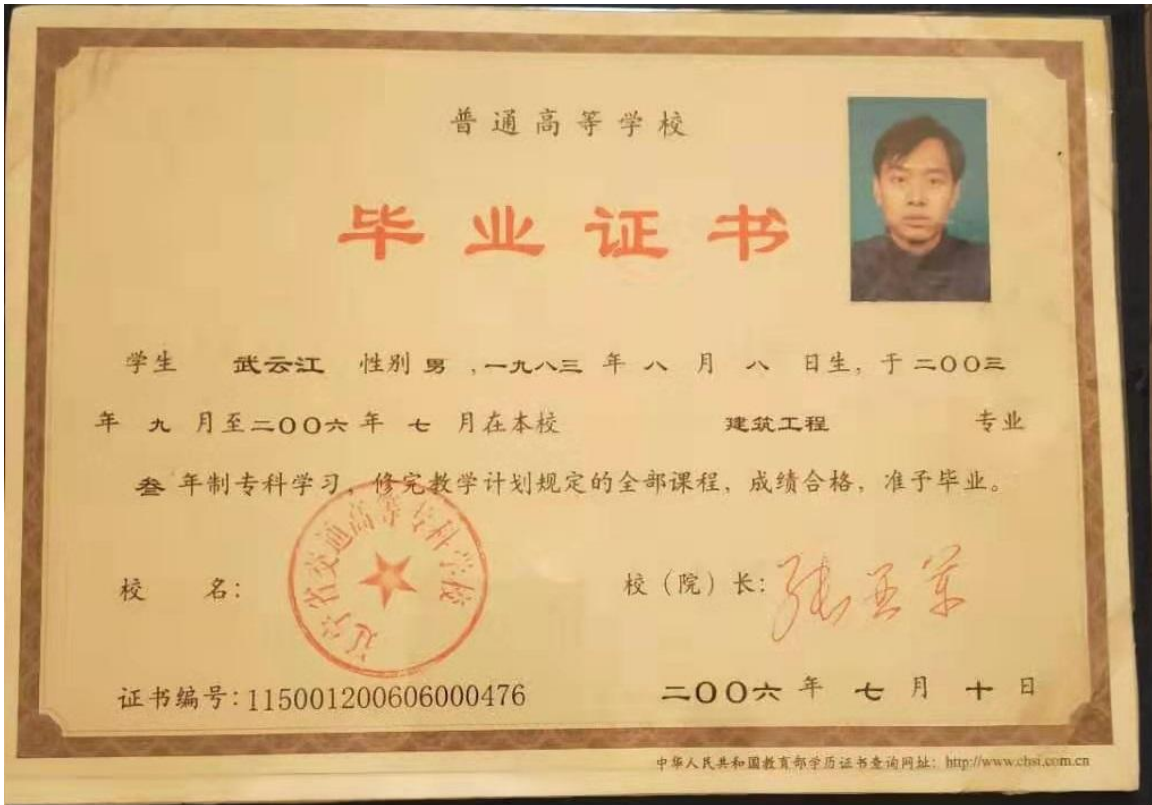 普通高等学校
毕业证书
学生 武云江 性别 男 ,一九八三 年 八 月 八 日生,于二〇〇三
年 九 月至二〇〇六 年 七 月在本校 建筑工程 专业
叁 年制专科学习,修完教学计划规定的全部课程,成绩合格,准予毕业。
辽宁省交通高等专科学校
校 名: 校(院)长:张亚军
证书编号:115001200606000476 二〇〇六 年 七 月 十 日
中华人民共和国教育部学历证书查询网址:http://www.chsi.com.cn